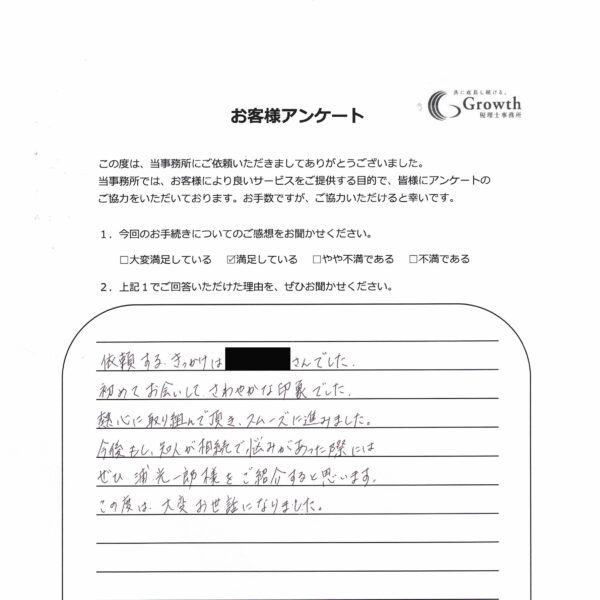 共に成長し続ける。
Growth
税理士事務所
お客様アンケート
この度は、当事務所にご依頼いただきましてありがとうございました。
当事務所では、お客様により良いサービスをご提供する目的で、皆様にアンケートの
ご協力をいただいております。お手数ですが、ご協力いただけると幸いです。
1．今回のお手続きについてのご感想をお聞かせください。
□大変満足している ☑満足している □やや不満である □不満である
2．上記１でご回答いただけた理由を、ぜひお聞かせください。
依頼する.きっかけは さんでした.
初めてお会いして.さわやかな印象でした.
熱心に取り組んで頂き、スムーズに進みました。
今後もし、知人が相続で悩みがあった際には
ぜひ 浦光一郎様をご紹介すると思います.
この度は.大変お世話になりました。